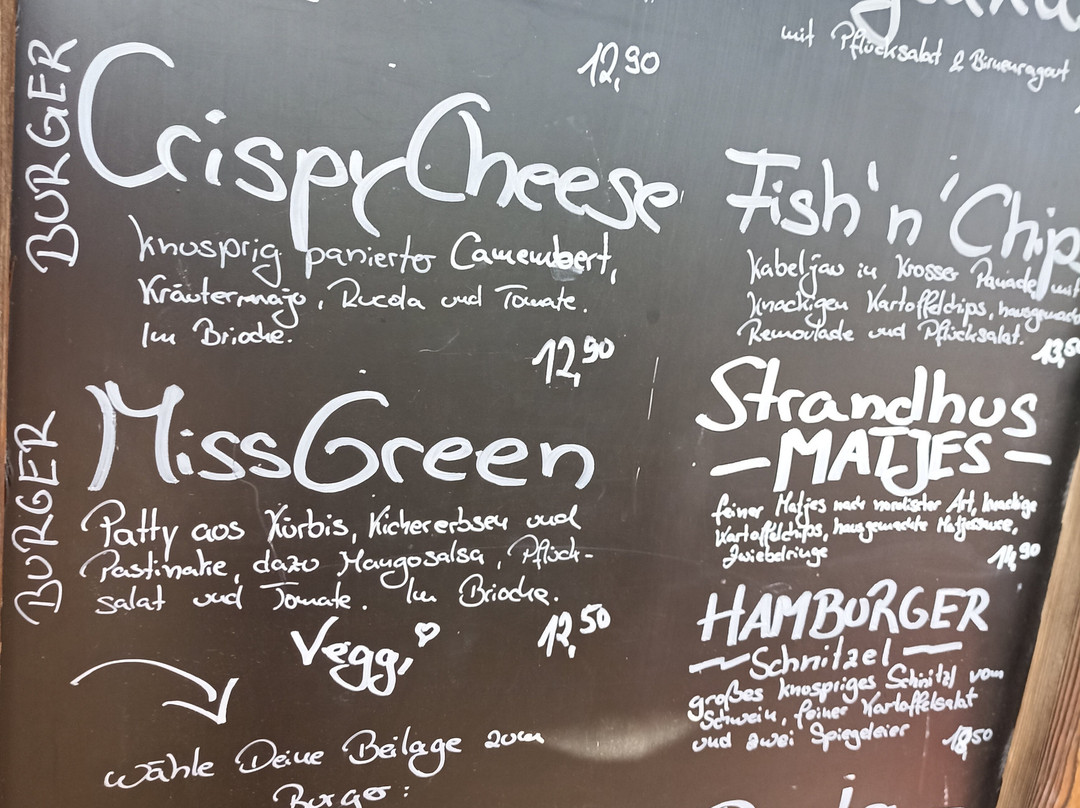 12,90
BURGER
CrispyCheese
knusprig panierter Camembert,
Kräutermajo, Rucola und Tomate.
Im Brioche.
12,90
BURGER
MissGreen
Patty aus Kürbis, Kichererbsen und
Pastinake, dazu Mangosalsa, Pflück-
salat und Tomate. Im Brioche.
12,50
Veggi
wähle Deine Beilage zum
Burger:
mit Pflücksalat & Birnenragout
Fish'n'Chips
Kabeljau in krosser Panade, mit
knackigen Kartoffelchips, hausgemach
Remoulade und Pflücksalat.
Strandhus
- MATJES -
feiner Matjes nach nordischer Art, knackige
Kartoffelchips, hausgemachte Matjessauce,
Zwiebelringe
14,90
HAMBURGER
Schnitzel
großes knuspriges Schnitzel vom
Schwein, feiner Kartoffelsalat
und zwei Spiegeleier
18,50